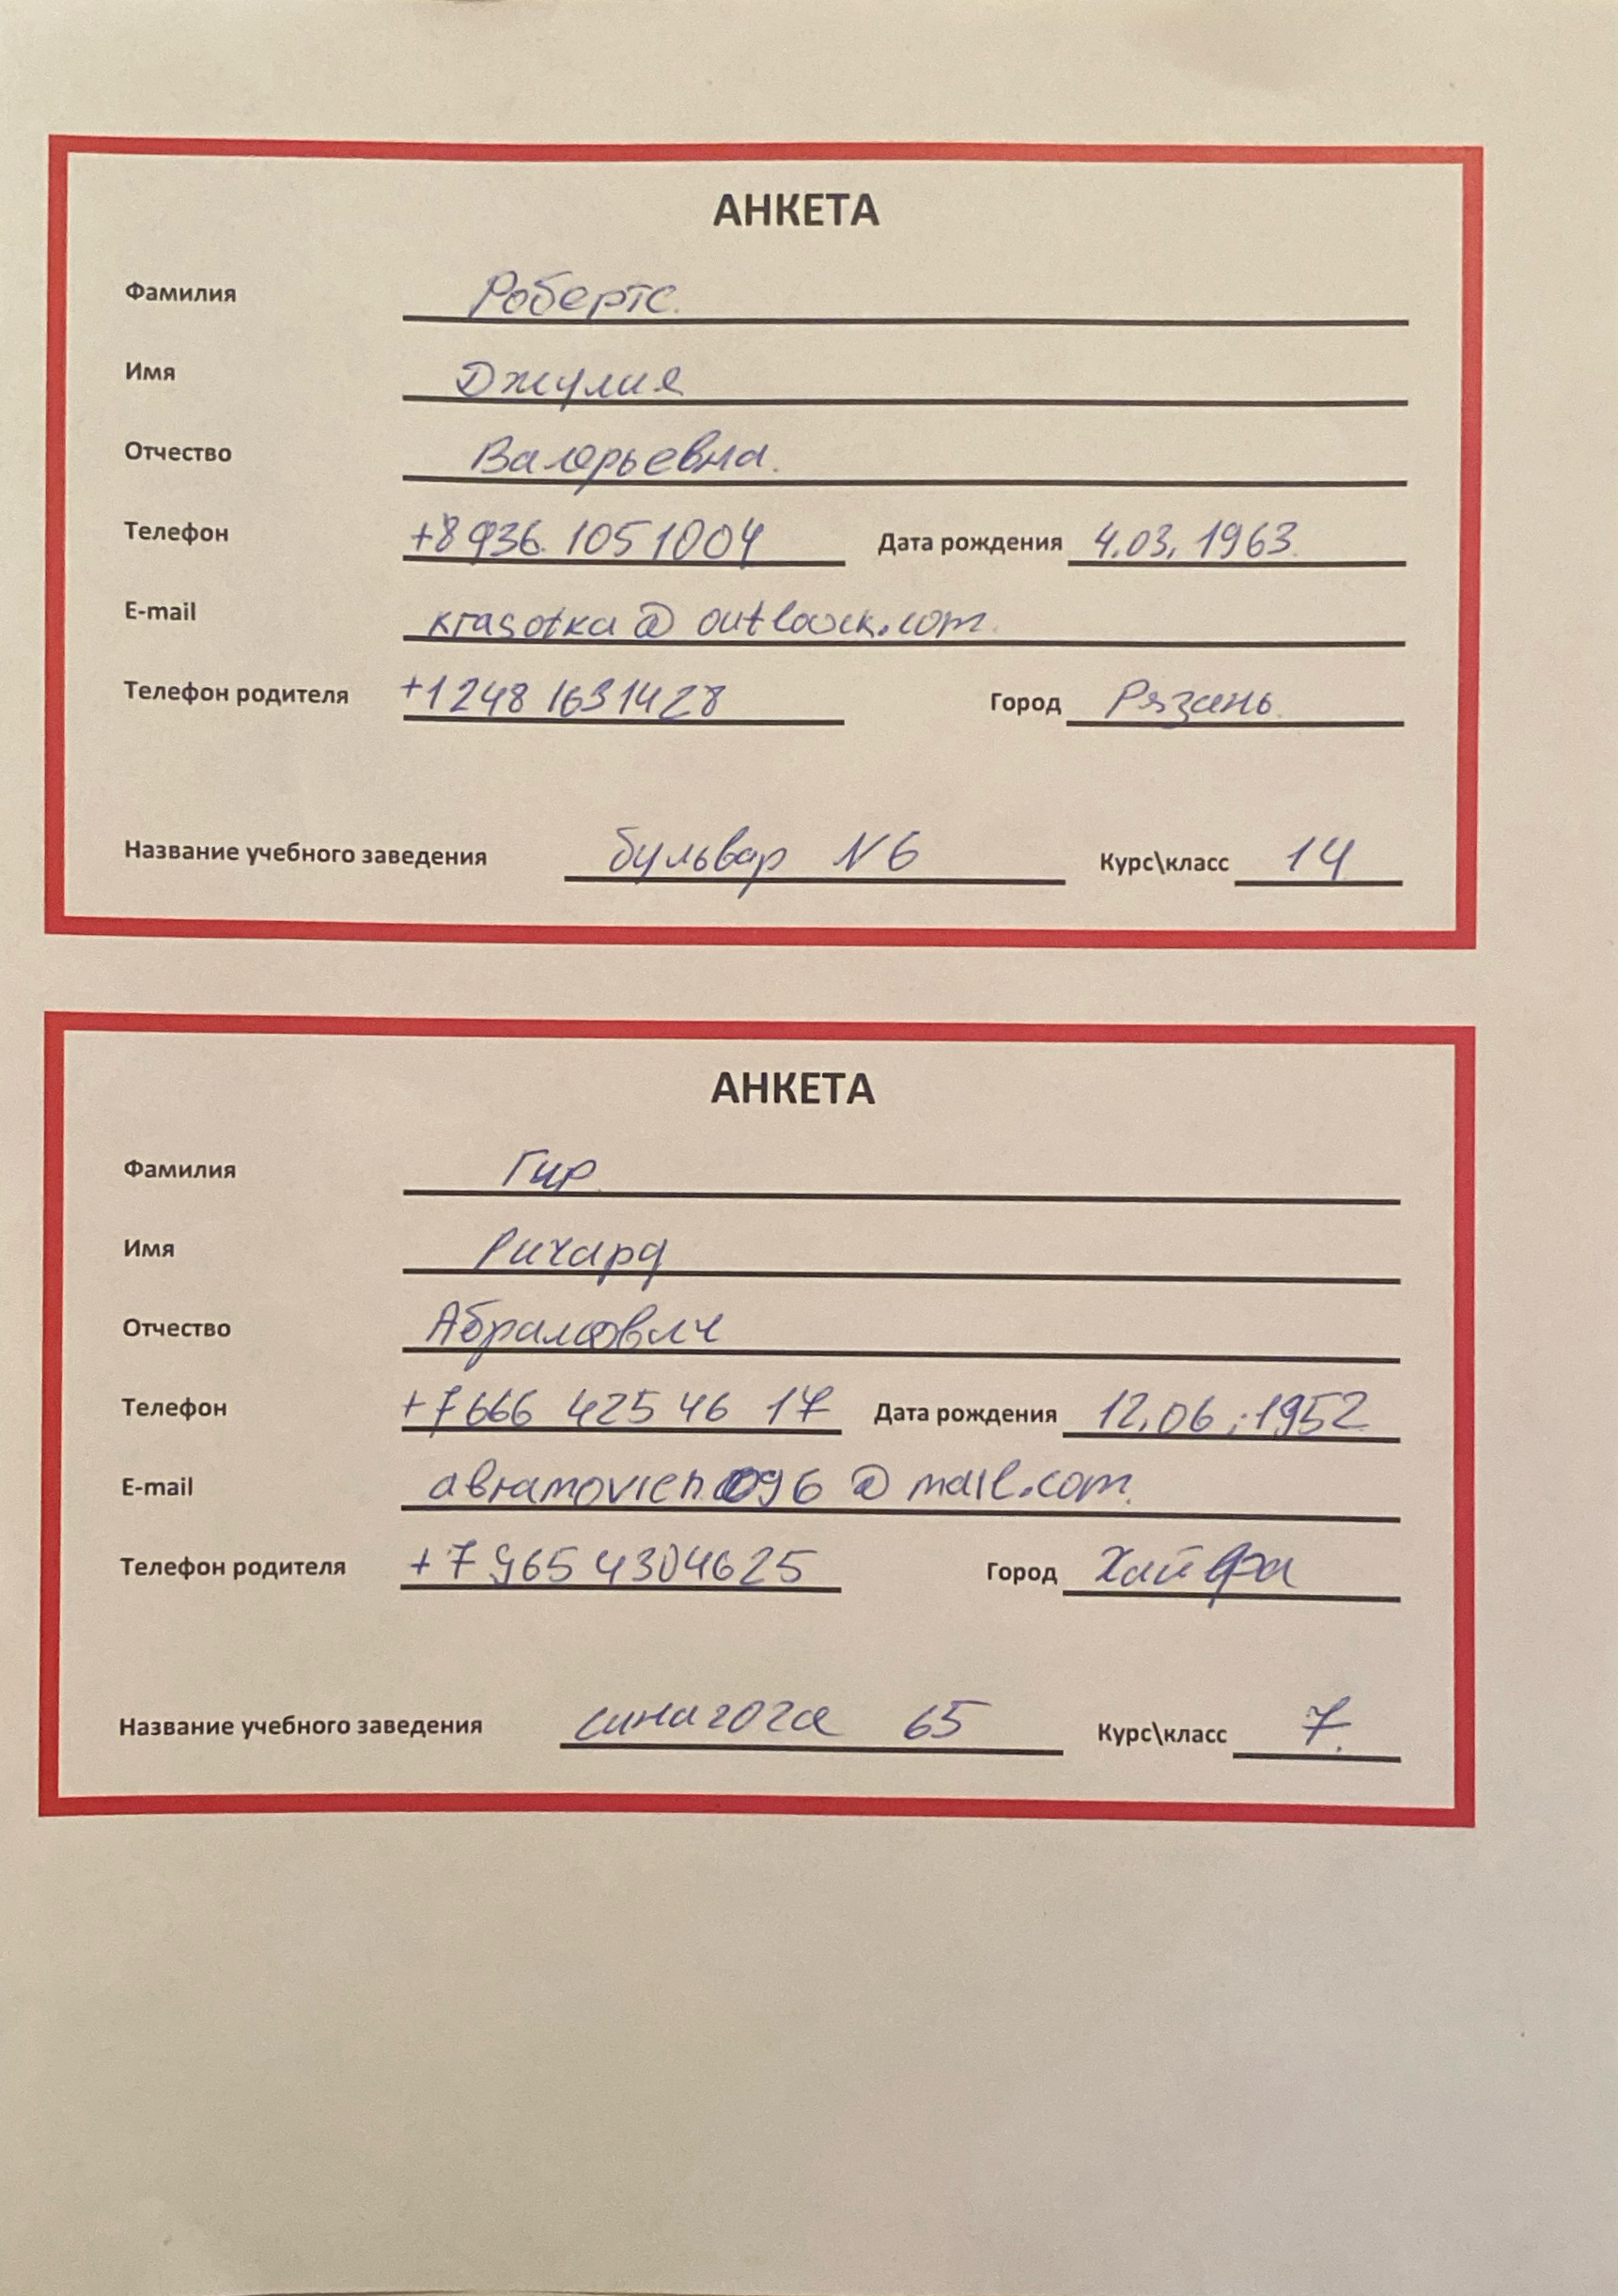 АНКЕТА
Фамилия Робертс.
Имя Джулия
Отчество Валерьевна.
Телефон +8 936 1051004 Дата рождения 4.03.1963
E-mail krasotka@outlook.com
Телефон родителя +1 248 1631428 Город Рязань
Название учебного заведения бульвар N6 Курс\класс 14
АНКЕТА
Фамилия Гир
Имя Ричард
Отчество Абрамович
Телефон +7 666 425 46 17 Дата рождения 12.06.1952
E-mail abramovich096@mail.com
Телефон родителя +7 965 4304625 Город Хайфа
Название учебного заведения синагога 65 Курс\класс 7.